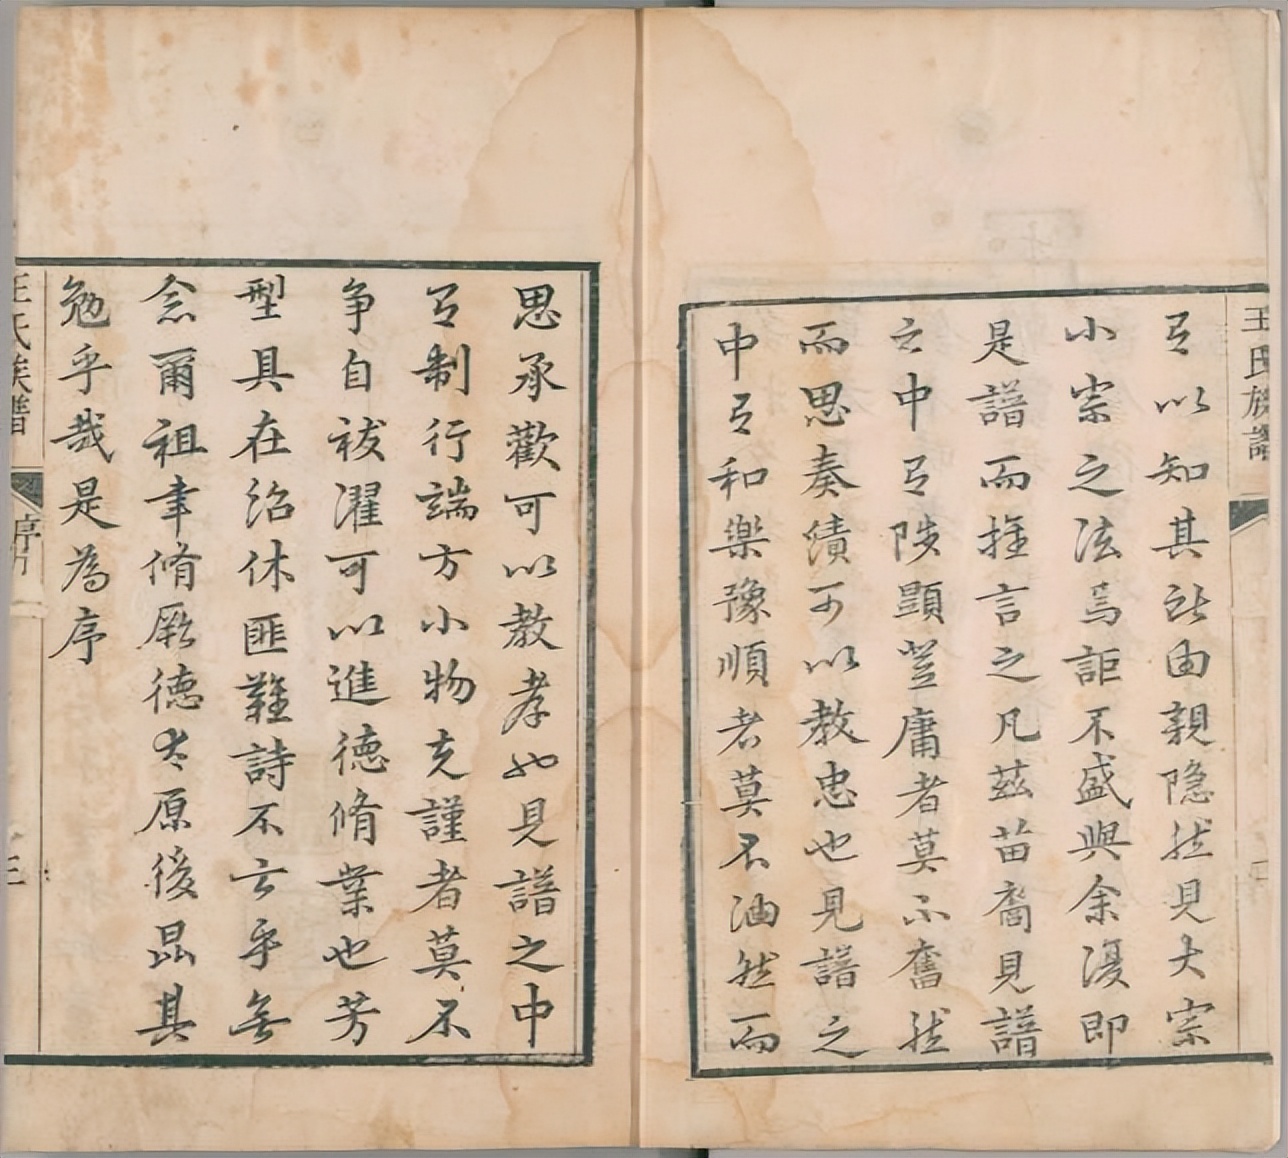 王氏族譜
有以知其所由親隐然見大宗
小宗之法焉詎不盛與余復即
是譜而推言之凡茲苗裔見譜
之中有陟顯登庸者莫不奮然
而思奏績可以教忠也見譜之
中有和樂豫順者莫不油然而
思承歡可以教孝也見譜之中
有制行端方小物克謹者莫不
争自祓濯可以進德脩業也芳
型具在紹休匪難詩不云乎無
念爾祖聿脩厥德太原後昆其
勉乎哉是為序
王氏族譜 序 三